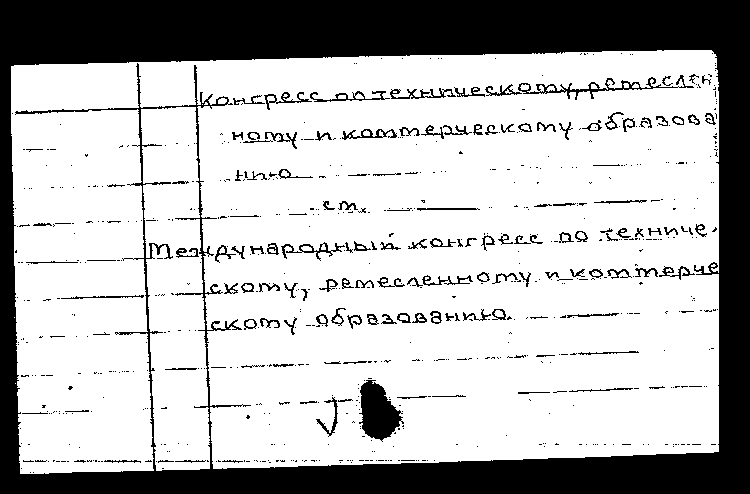 Конгресс по техническому, ремеслен
ному и коммерческому образова
нию
см.
Международный конгресс по техниче-
скому, ремесленному и коммерче
скому образованию.